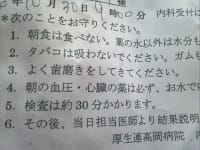 年10月30日9時00分 内科受付に
*次のことをお守りください。
1. 朝食は食べない。薬の水以外は水分も
2. タバコは吸わないでください。ガムも
3. よく歯磨きをしてきてください。
4. 朝の血圧・心臓の薬は必ず、お水で内
5. 検査は約30分かかります。
6. その後、当日担当医師より結果説明
厚生連高岡病院 内